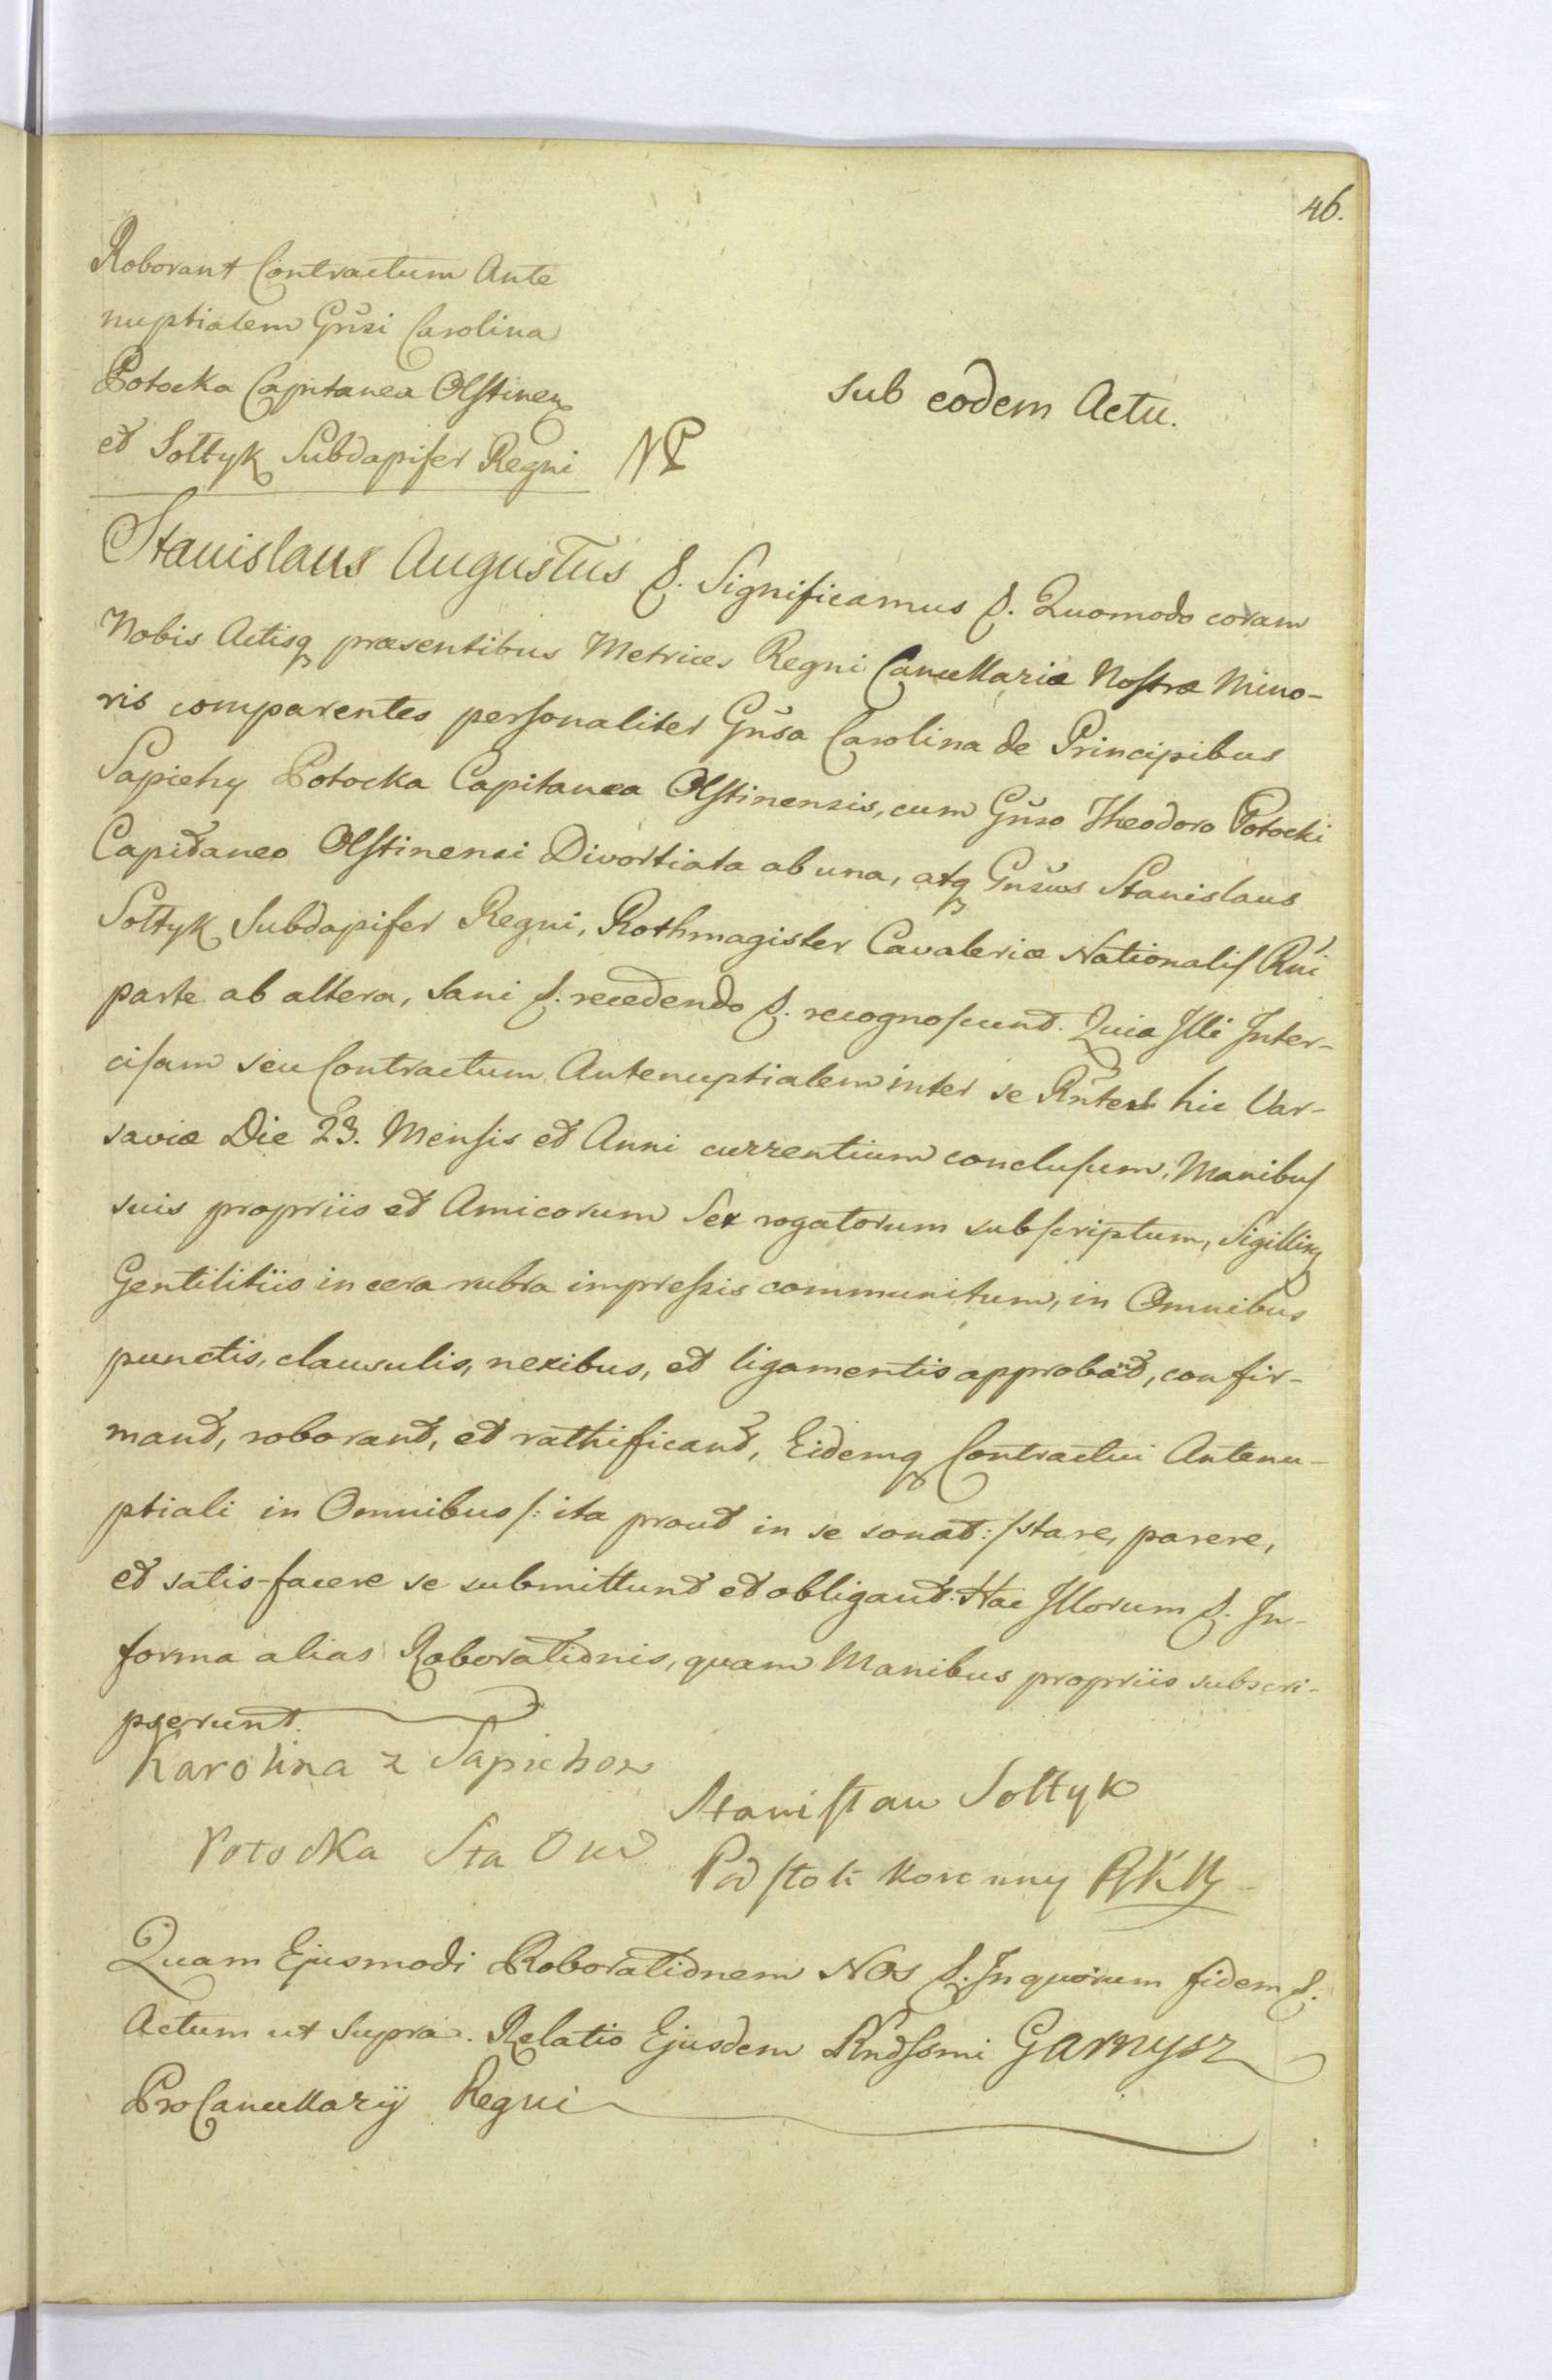 46.
Roborant Contractum Ante
nuptialem Gnsi Carolina
Potocka Capitanea Olstinen
et Sołtyk Subdapifer Regni NP
Sub eodem Actu.
Stanislaus Augustus &. Significamus &. Quomodo coram
Nobis Actisq præsentibus Metrices Regni Cancellariæ Nostræ Mino-
ris comparentes personaliter Gnsa Carolina de Principibus
Sapiehy Potocka Capitanea Olstinensis, cum Gnso Theodoro Potocki
Capitaneo Olstinensi Divortiata ab una, atq Gnsus Stanislaus
Sołtyk Subdapifer Regni, Rothmagister Cavaleriæ Nationalis Rni
parte ab altera, Sani &. recedendo &. recognoscunt. Quia Illi Inter-
cisam seu Contractum Antenuptialem inter se Rntes hic Var-
saviæ Die 23. Mensis et Anni currentium conclusum, Manibus
suis propriis et Amicorum Sex rogatorum subscriptum, Sigillisq
Gentilitiis in cera rubra impressis communitum, in Omnibus
punctis, clausulis, nexibus, et ligamentis approbant, confir-
mant, roborant, et rathificant, Eidemq Contractui Antenu-
ptiali in Omnibus /: ita prout in se sonat :/ stare, parere,
et satis-facere se submittunt et obligant. Hac Illorum &. In-
forma alias Roborationis, quam Manibus propriis subscri-
pserunt.
Karolina z Sapiehow
Potocka Sta Ol
Stanisław Sołtyk
Podstoli Koronny RKN
Quam Ejusmodi Roborationem NOS &. In quorum fidem &.
Actum ut Supra. Relatio Ejusdem Rndssmi Garnysz
ProCancellarij Regni